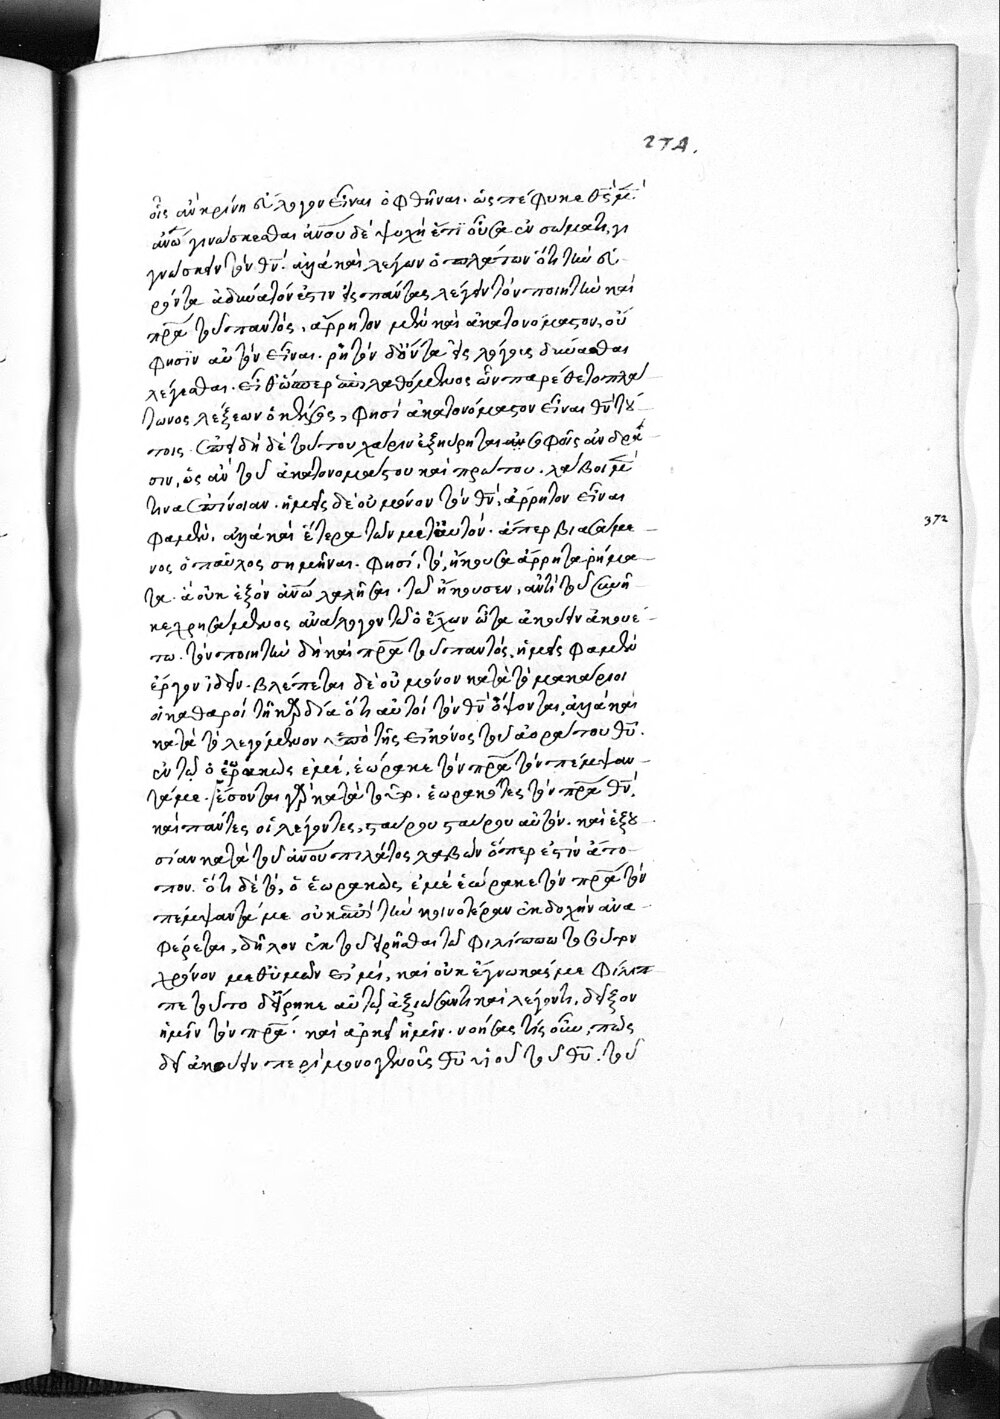 274.
οἷς ἂν κρίνῃ εὔλογον εἶναι ὀφθῆναι. ὡς πέφυκε θς̄ μ̄
ἀνω̄ γινώσκεσθαι ἀνοῡ δὲ ψυχὴ ἔτι οὖσα ἐν σώματι, γι
γνώσκειν τὸν θν̄. ἀλλὰ καὶ λέγων ὁ πλάτων ὅτι τὸν εὑ-
ρόντα ἀδύνατόν ἐστιν εἰς πάντας λέγειν τὸν ποιητὴν καὶ
πρᾱ τοῦ παντὸς, ἄρρητον μὲν καὶ ἀκατονόμαστον, οὔ
φησὶν αὐτὸν εἶναι. ῥητὸν δ' ὄντα εἰς λόγοις δύνασθαι
λέγεσθαι. εἶθ' ὥσπερ ἐπιλαθόμενος ὧν παρέθετο πλά
τωνος λέξεων ὁ κέλσος, φησὶ ἀκατονόμαστον εἶναι θν̄ τού-
τοις. ἐπειδὴ δὲ τούτου χάριν ἐξηύρηται σοφοῖς ἀνδρά
σιν, ὡς ἂν τοῦ ἀκατονομάστου καὶ πρώτου. λάβοιμέν
τινα ἐπίνοιαν. ἡμεῖς δὲ οὐ μόνον τὸν θν̄, ἄρρητον εἶναι
φαμὲν, ἀλλὰ καὶ ἕτερα τῶν μετ' αὐτόν. ἅπερ βιασάμε-
νος ὁ παῦλος σημῆναι. φησὶ, τὸ, ἤκουσα ἄρρητα ῥήμα-
τα. ἃ οὐκ ἐξὸν ἀνω̄ λαλῆσαι. τῷ ἤκουσεν, ἀντὶ τοῦ συνῆ
κε χρησάμενος ἀνάλογον τῷ ὁ ἔχων ὦτα ἀκούειν ἀκουέ-
τω. τὸν ποιητὴν δὴ καὶ πρᾱ τοῦ παντὸς, ἡμεῖς φαμὲν
ἔργον ἰδεῖν. βλέπεται δὲ οὐ μόνον κατὰ τὸ μακάριοι
οἱ καθαροὶ τῇ καρδίᾳ ὅτι αὐτοὶ τὸν θν̄ ὄψονται, ἀλλὰ καὶ
κατὰ τὸ λεγόμενον ὑπὸ τῆς εἰκόνος τοῦ ἀοράτου θῡ.
ἐν τῷ ὁ ἑωρακὼς ἐμέ, ἑώρακε τὸν πρᾱ τὸν πέμψαν-
τά με. ἔσονται γὰρ κατὰ ἑωρακότες τὸν πρᾱ θν̄,
καὶ πάντες οἱ λέγοντες, σταύρου σταύρου αὐτὸν. καὶ ἐξου
σίαν κατὰ τοῦ ἀνοῡ πιλάτος λαβὼν ὅπερ ἐστὶν ἄτο-
πον. ὅτι δὲ τὸ, ὁ ἑωρακὼς ἐμὲ ἑώρακε τὸν πρᾱ τὸν
πέμψαντά με οὐκ ἐπὶ τὴν κοινοτέραν ἐκδοχὴν ἀνα-
φέρεται, δῆλον ἐκ τοῦ εἰρῆσθαι τῷ φιλίππῳ τοσοῦτον
χρόνον μεθ' ὑμῶν εἰμὶ, καὶ οὐκ ἔγνωκάς με φίλιπ-
πε τοῦτο δ' εἴρηκε αὐτῷ ἀξιώσαντι καὶ λέγοντι, δεῖξον
ἡμῖν τὸν πρᾱ. καὶ ἀρκεῖ ἡμῖν. νοήσας τίς οὖν, πῶς
δεῖ ἀκούειν περὶ μονογενοῦς θῡ υἱοῦ τοῦ θῡ. τοῦ
372